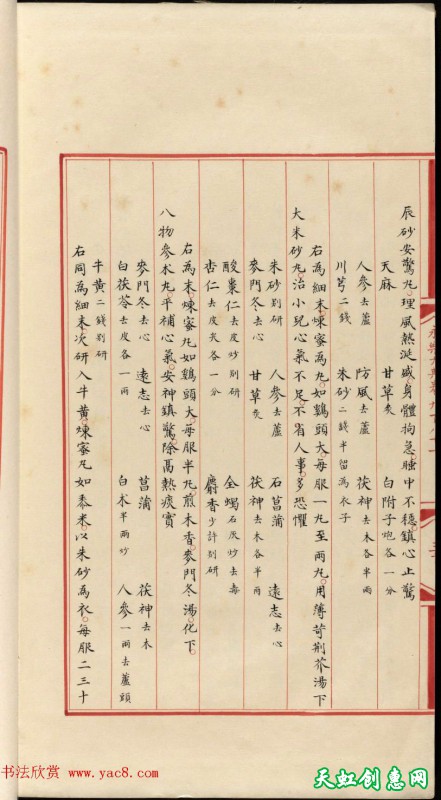 辰砂安驚丸理風熱涎盛身體拘急睡中不穩鎮心止驚
天麻 甘草炙 白附子炮各一分
人參去蘆 防風去蘆 茯神去木各半兩
川芎二錢 朱砂二錢半留為衣子
右為細末煉蜜為丸如鷄頭大每服一丸至兩丸用薄荷荆芥湯下
大朱砂丸治小兒心氣不足不省人事多恐懼
朱砂別研 人參去蘆 石菖蒲 遠志去心
麥門冬去心 甘草炙 茯神去木各半兩
酸棗仁去皮炒別研 全蠍石灰炒去毒
杏仁去皮尖各一分 麝香少許別研
右為末煉蜜丸如鷄頭大每服半丸煎木香麥門冬湯化下
八物參术丸平補心氣安神鎮驚除髙熱痰實
麥門冬去心 遠志去心 菖蒲 茯神去木
白茯苓去皮各一兩 白术半兩炒 人參一兩去蘆頭
牛黃二錢別研
右同為細末次研入牛黃煉蜜丸如黍米以朱砂為衣每服二三十
书法欣赏 www.yac8.com
天虹创意网